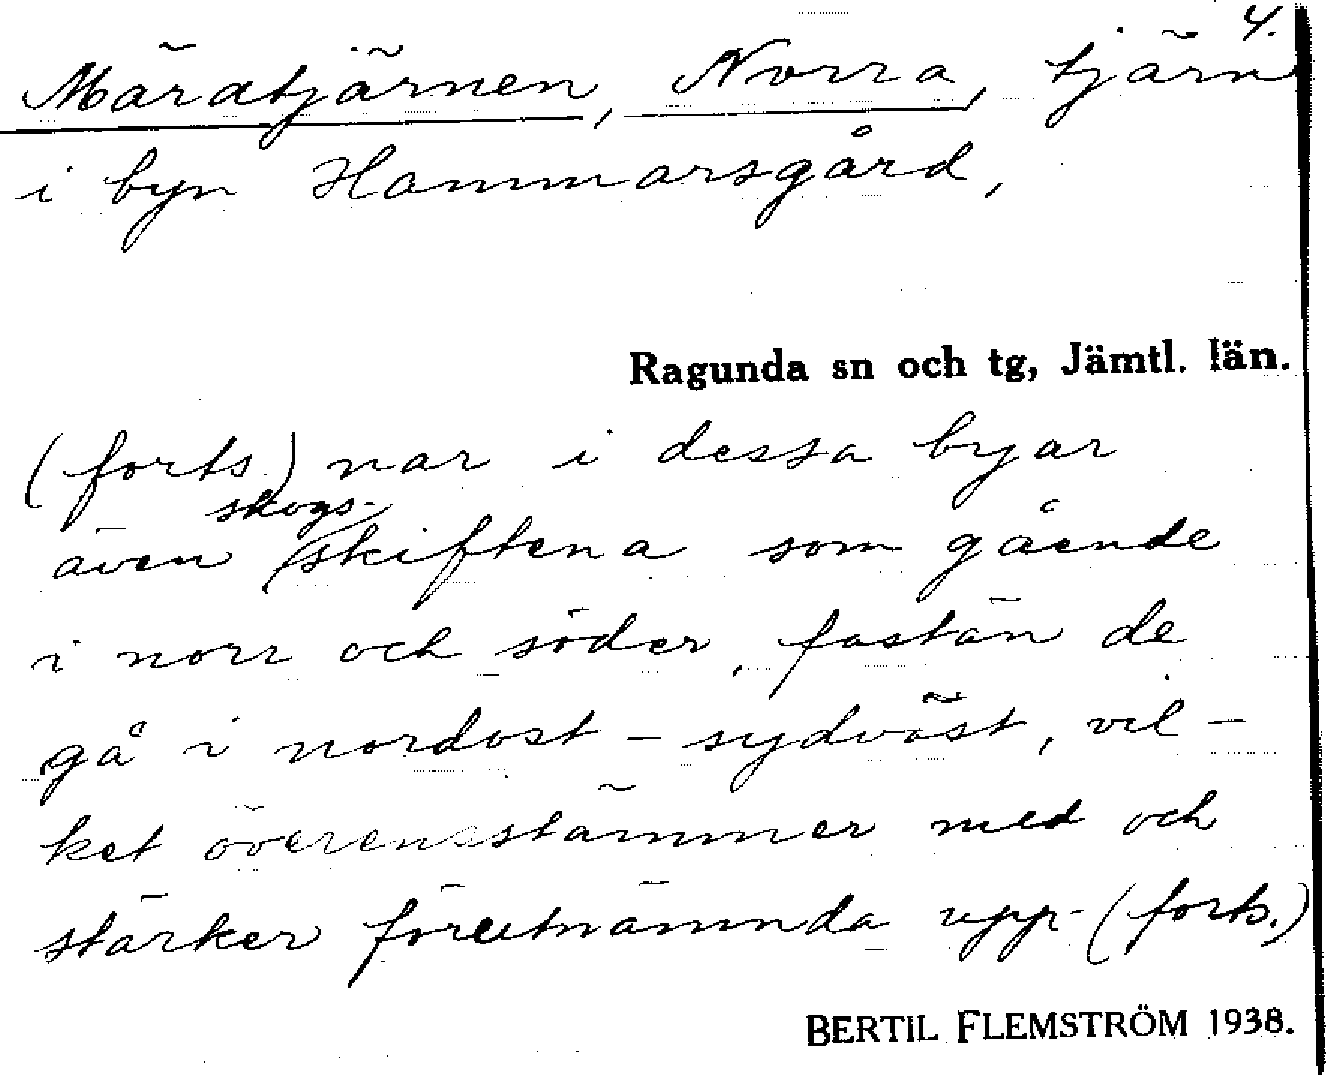 4.
Märatjärnen, Norra, tjärn
i byn Hammarsgård,
Ragunda sn och tg, Jämtl. län.
(forts.) nar i dessa byar
skogs-
även skiftena som gående
i norr och söder, fastän de
gå i nordost - sydväst, vil-
ket överensstämmer med och
stärker förutnämnda upp- (forts.)
BERTIL FLEMSTRÖM 1938.